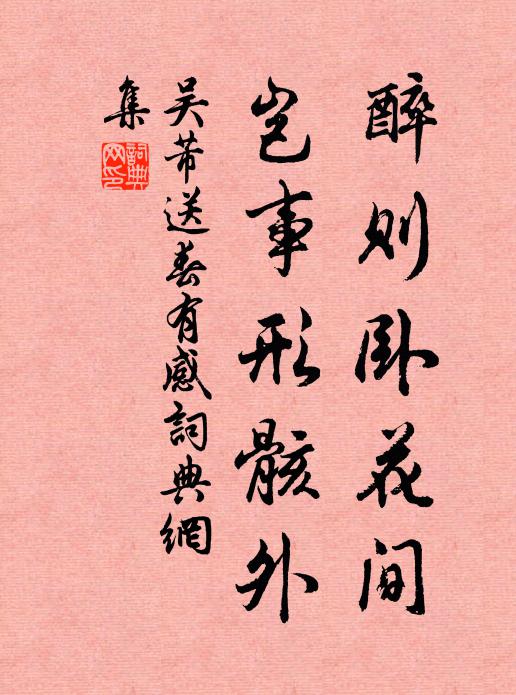 醉则卧花间
岂事形骸外
吴芾送春有感詞典網
集
詞典网印